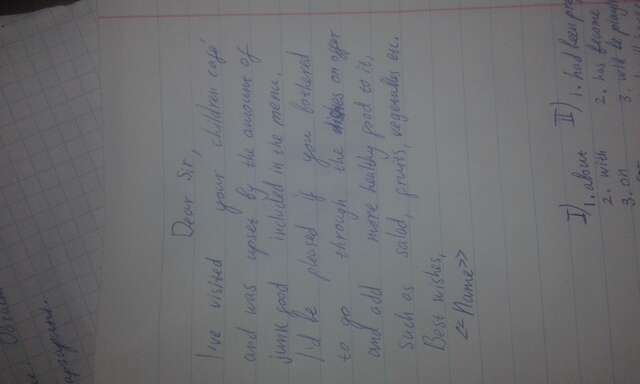 Dear Sir,
I've visited your children café
and was upset by the amount of
junk food included in the menu.
I'd be pleased if you bothered
to go through the dishes on offer
and add more healthy food to it,
such as salad, fruits, vegetables etc.
Best wishes,
<<Name>>
I) 1. about
2. with
3. on
II) 1. had been
2. has become
3. will be